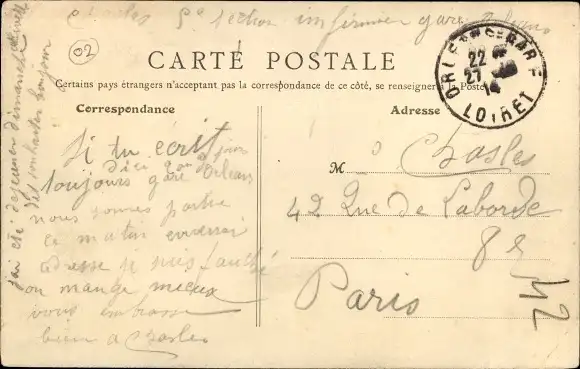 Chasles 5e section infirmier gare
02
CARTE POSTALE
Certains pays étrangers n'acceptent pas la correspondance de ce côté, se renseigner à la Poste
ORLEANS GARE
22
27
14
LOIRET
Correspondance
Adresse
Si tu écrit
d'ici
toujours gare Orléans
nous sommes
ce matin
adresse je suis
on mange mieux
vous embrasse
bien Chasles
j'ai été déjeuner dimanche
M Chasles
42 Rue de Laborde
8e
Paris
42